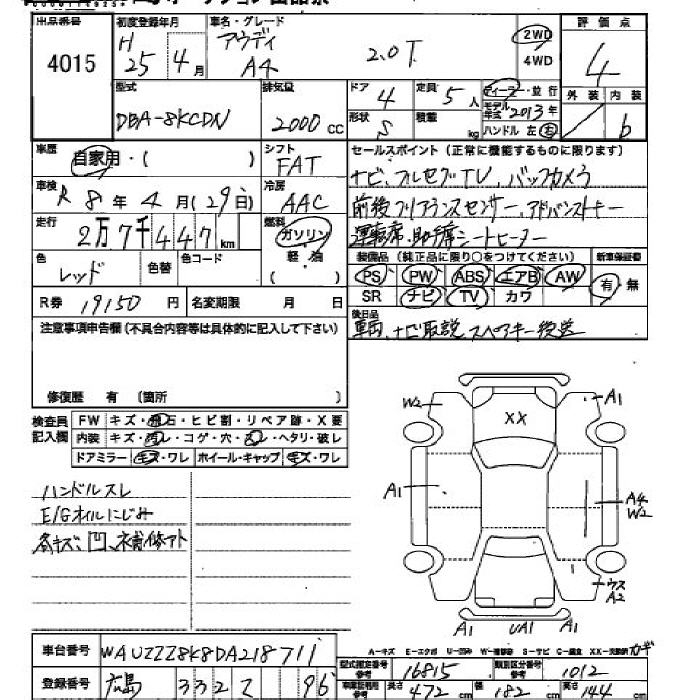 出品番号 初度登録年月 車名・グレード 評価点
4015 H 25年 4月 アウディ A4 2.0T 2WD 4WD 4
型式 排気量 ドア 4 定員 5人 ディーラー・並行 外装 内装
DBA-8KCDN 2000cc 形状 S 積載 kg モデル年式 2013年 ハンドル 左 右 b
車歴 自家用・( ) シフト FAT セールスポイント(正常に機能するものに限ります)
車検 R 8年 4月(29日) 冷房 AAC ナビ、フルセグTV、バックカメラ
走行 2万7千447km 燃料 ガソリン 軽・油 ( ) 前後クリアランスセンサー、アドバンストキー
運転席、助手席シートヒーター
色 レッド 色替 色コード 装備品(純正品に限り○をつけてください) 新車保証書
PS PW ABS エアB AW 有・無
R券 19150円 名変期限 月 日 SR ナビ TV カワ
注意事項申告欄(不具合内容等は具体的に記入して下さい) 後日品
車両、ナビ取説、スペアキー後送
修復歴 有 (箇所 )
検査員記入欄 FW キズ・飛石・ヒビ割・リペア跡・X要
内装 キズ・汚レ・コゲ・穴・スレ・ヘタリ・破レ
ドアミラー キズ・ワレ ホイール・キャップ キズ・ワレ
W2 XX A1
ハンドルスレ A1 A4 W2
E/Gオイルにじみ
各キズ、凹、補修アト
ウス A2
A1 UA1 A1
A-キズ E-エクボ U-凹み W-補修跡 S-サビ C-腐食 XX-交換済
車台番号 WAUZZZ8K8DA218711 型式指定番号 参考 16815 類別区分番号 参考 1012
登録番号 広島 332 て 96 車庫証明用 参考 長さ 472cm 幅 182cm 高さ 144cm